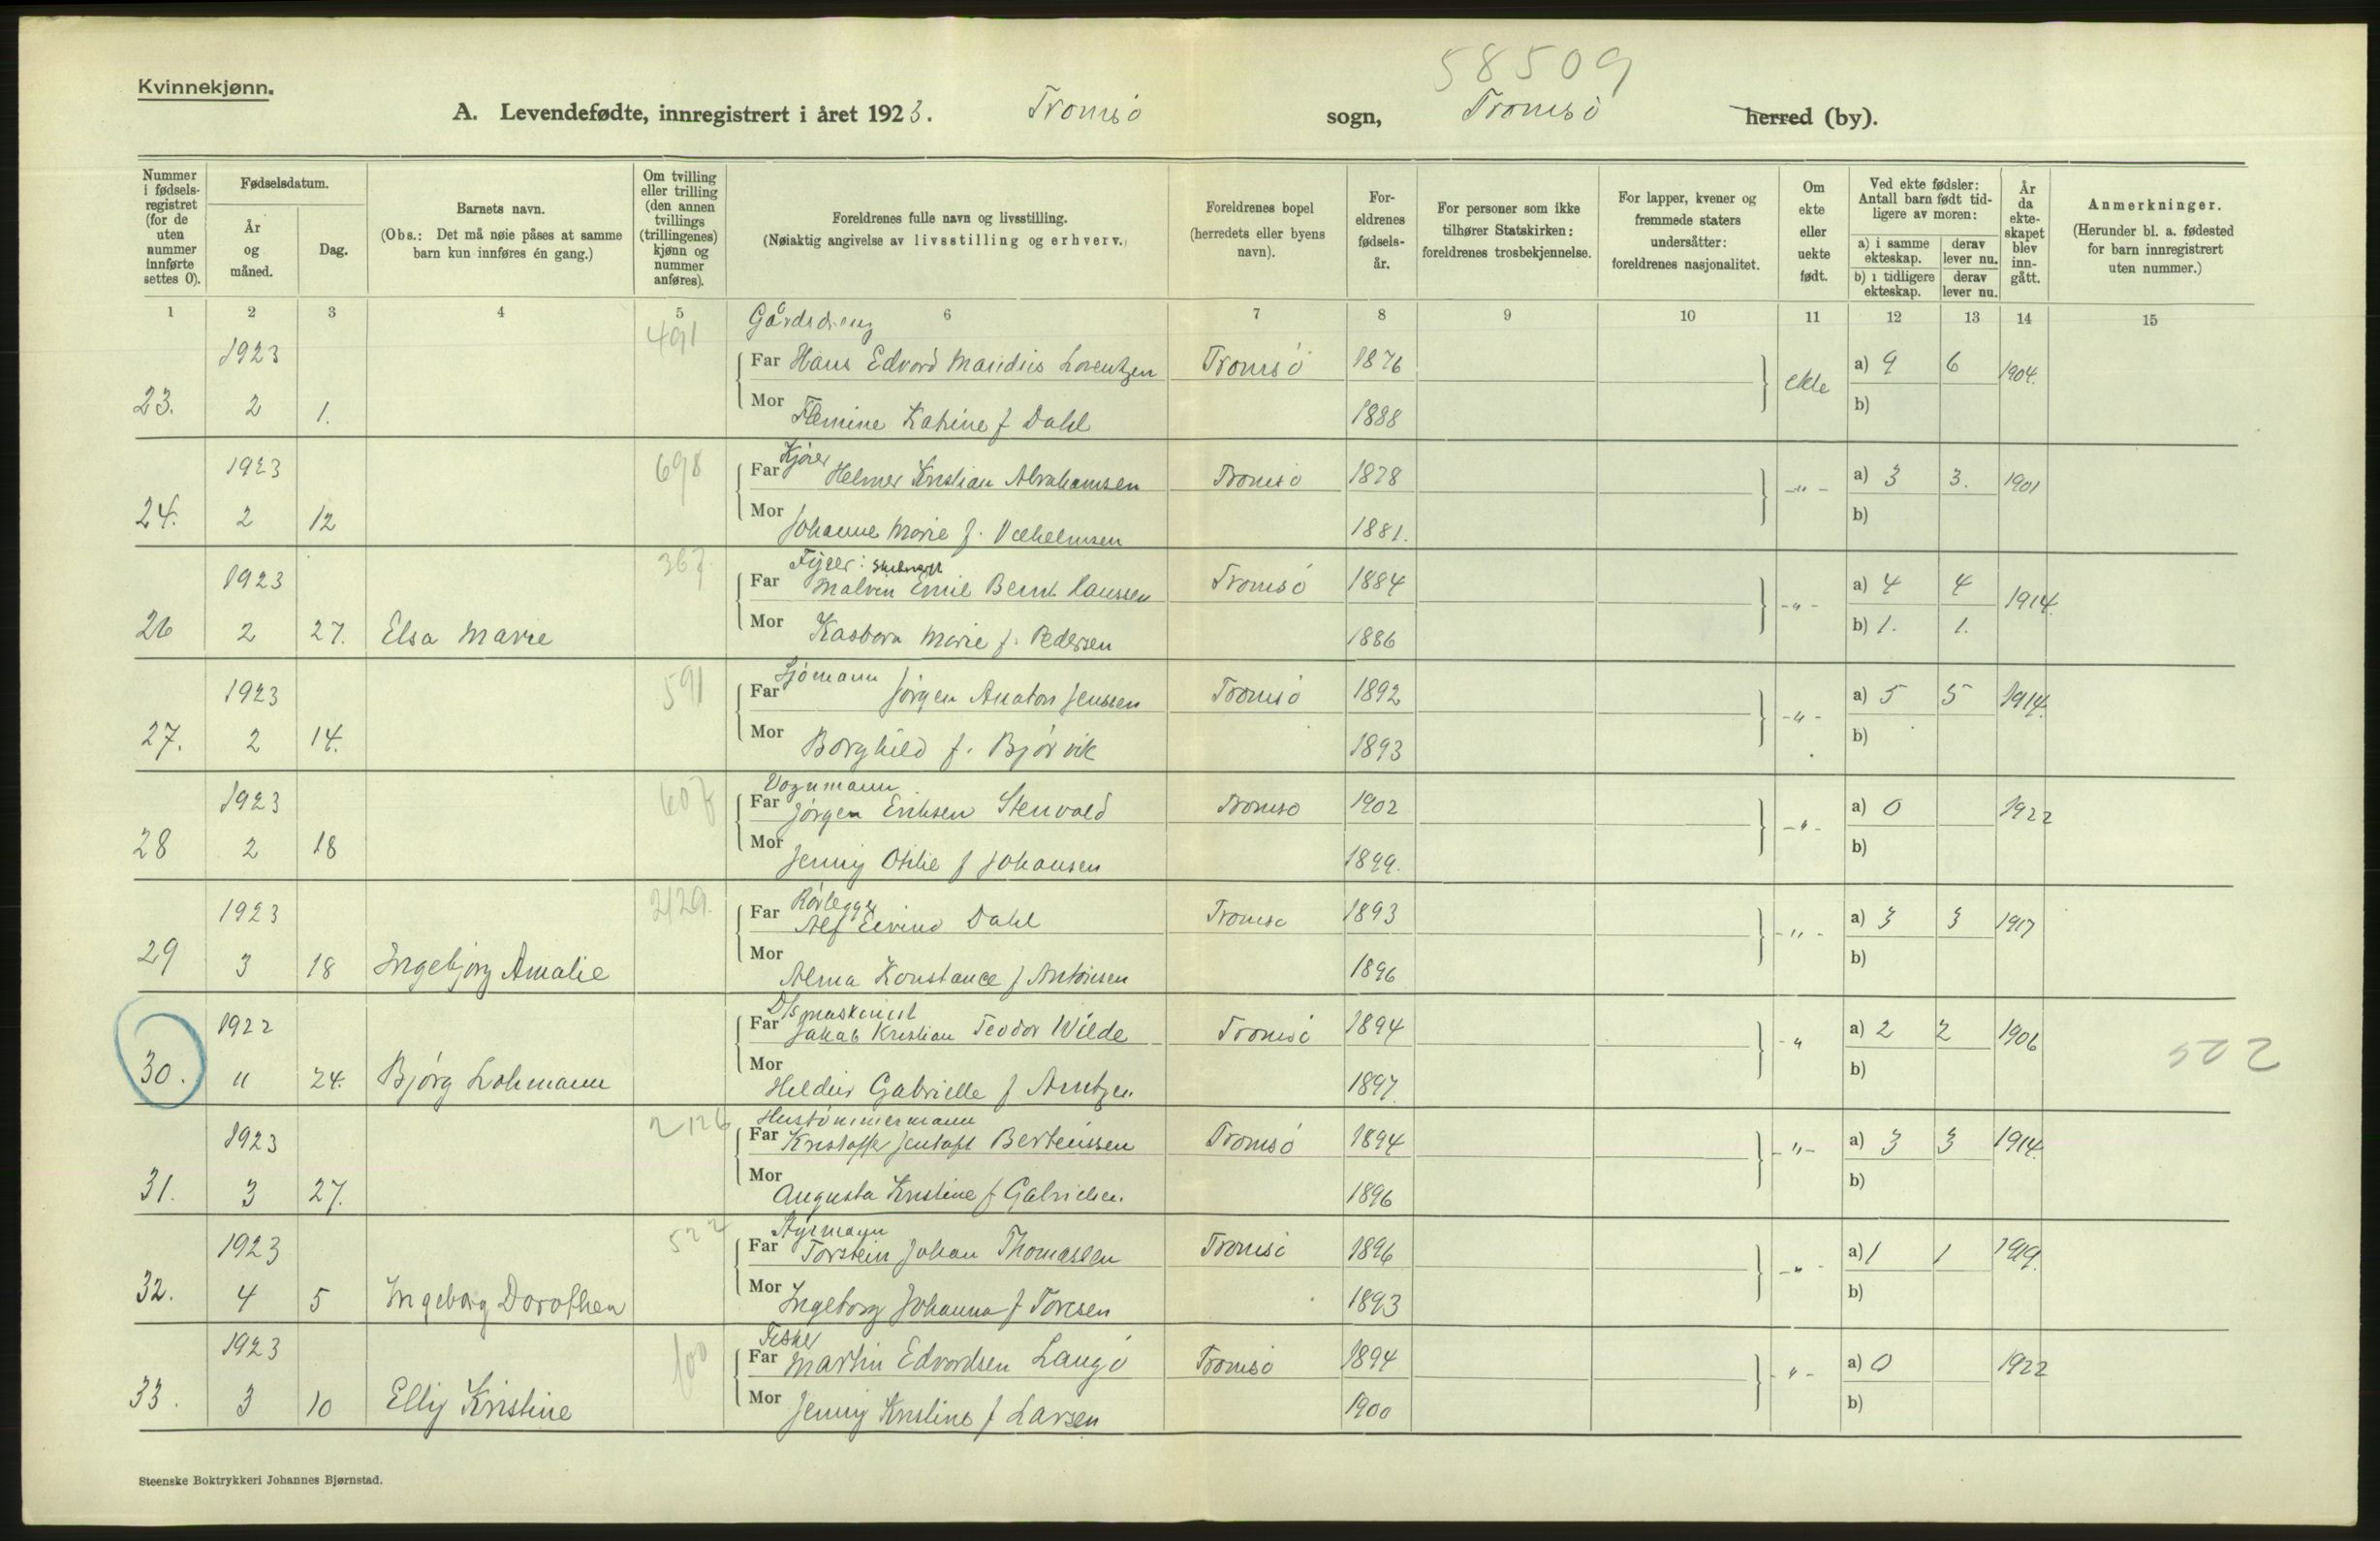 58509
Kvinnekjønn.
A. Levendefødte, innregistrert i året 1923. Tromsö sogn, Tromsö herred (by).
Nummer i fødsels-registret (for de uten nummer innførte settes 0).
Fødselsdatum.
År og måned.
Dag.
Barnets navn.
(Obs.: Det må nøie påses at samme barn kun innføres én gang.)
Om tvilling eller trilling (den annen tvillings (trillingenes) kjønn og nummer anføres).
Foreldrenes fulle navn og livsstilling.
(Nøiaktig angivelse av livsstilling og erhverv.)
Foreldrenes bopel (herredets eller byens navn).
For-eldrenes fødsels-år.
For personer som ikke tilhører Statskirken: foreldrenes trosbekjennelse.
For lapper, kvener og fremmede staters undersåtter: foreldrenes nasjonalitet.
Om ekte eller uekte født.
Ved ekte fødsler: Antall barn født tid-ligere av moren:
a) i samme ekteskap.
derav lever nu.
b) i tidligere ekteskap.
derav lever nu.
År da ekte-skapet blev inn-gått.
Anmerkninger.
(Herunder bl. a. fødested for barn innregistrert uten nummer.)
1 2 3 4 5 6 7 8 9 10 11 12 13 14 15
491 Gårdsdreng
1923 Far Hans Edvard Lorentzen Tromsö 1876 ekte a) 9 6 1904.
23. 2 1. Mor Katrine f Dahl 1888 b)
1923 698 Kjörer
Far Helmer Kristian Abrahamsen Tromsö 1878 -"- a) 3 3. 1901
24. 2 12 Mor Johanne Marie f. Vilhelmsen 1881. b)
367 
1923 Far Malvin Emil Bernt Hanssen Tromsö 1884 -"- a) 4 4 1914.
26 2 27. Elsa Marie Mor Marie f. Pedersen 1886 b) 1. 1.
591 Sjömann
1923 Far Jörgen Anaton Jenssen Tromsö 1892 -"- a) 5 5 1914.
27. 2 14. Mor Borghild f. Bjørvik 1893 b)
607 Vognmann
1923 Far Jörgen Eriksen Stenvold Tromsö 1902 -"- a) 0 1922
28 2 18 Mor Jenny Otilie f Johansen 1899. b)
2129. Rörlegger
1923 Far Alf Eivind Dahl Tromsö 1893 -"- a) 3 3 1917
29 3 18 Ingebjørg Amalie Mor Alma Konstance f Antonsen 1896 b)
D/s maskinist
1922 Far Jakob Kristian Teodor Wilde Tromsö 1894 -" a) 2 2 1906
30. 11 24. Bjørg Lohmann Mor Gabrielle f Arntzen 1897. b) 502
2126 Hustömmermann
1923 Far Berteussen Tromsö 1894 -"- a) 3 3 1914.
31. 3 27. Mor Augusta Kristine f Gabrielsen. 1896 b)
522 Styrmann
1923 Far Torstein Johan Thomassen Tromsö 1896 -"- a) 1 1 1919.
32. 4 5 Ingeborg Dorothea Mor Ingeborg Johanna f Toresen 1893 b)
100 Fisker
1923 Far Martin Edvardsen Langö Tromsö 1894 -"- a) 0 1922
33. 3 10 Elly Kristine Mor Jenny Kristine f Larsen 1900 b)
Steenske Boktrykkeri Johannes Bjørnstad.